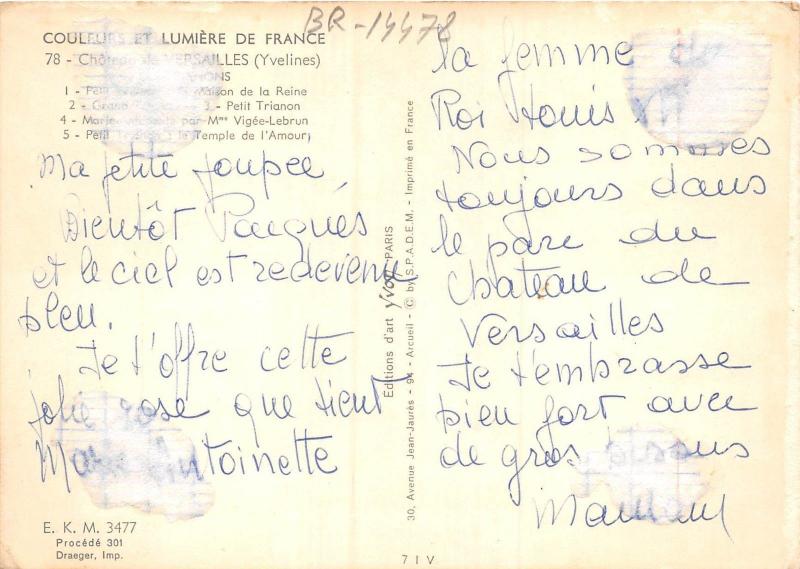 BR-14478
COULEURS ET LUMIÈRE DE FRANCE
78 - Château de VERSAILLES (Yvelines)
1 - Petit Maison de la Reine
2 - Grand 3 - Petit Trianon
4 - Marie par Mme Vigée-Lebrun
5 - Petit le Temple de l'Amour
Ma petite poupée,
Bientôt Pacques
et le ciel est redevenu
bleu.
Je t'offre cette
jolie rose que tient
Marie Antoinette
E. K. M. 3477
Procédé 301
Draeger, Imp.
Editions d'art YVON PARIS
30, Avenue Jean-Jaurès - 94 - Arcueil - © by S.P.A.D.E.M. - Imprimé en France
7 I V
la femme du
Roi Louis
Nous sommes
toujours dans
le parc du
chateau de
Versailles
Je t'embrasse
bien fort avec
de gros bisous
Maman